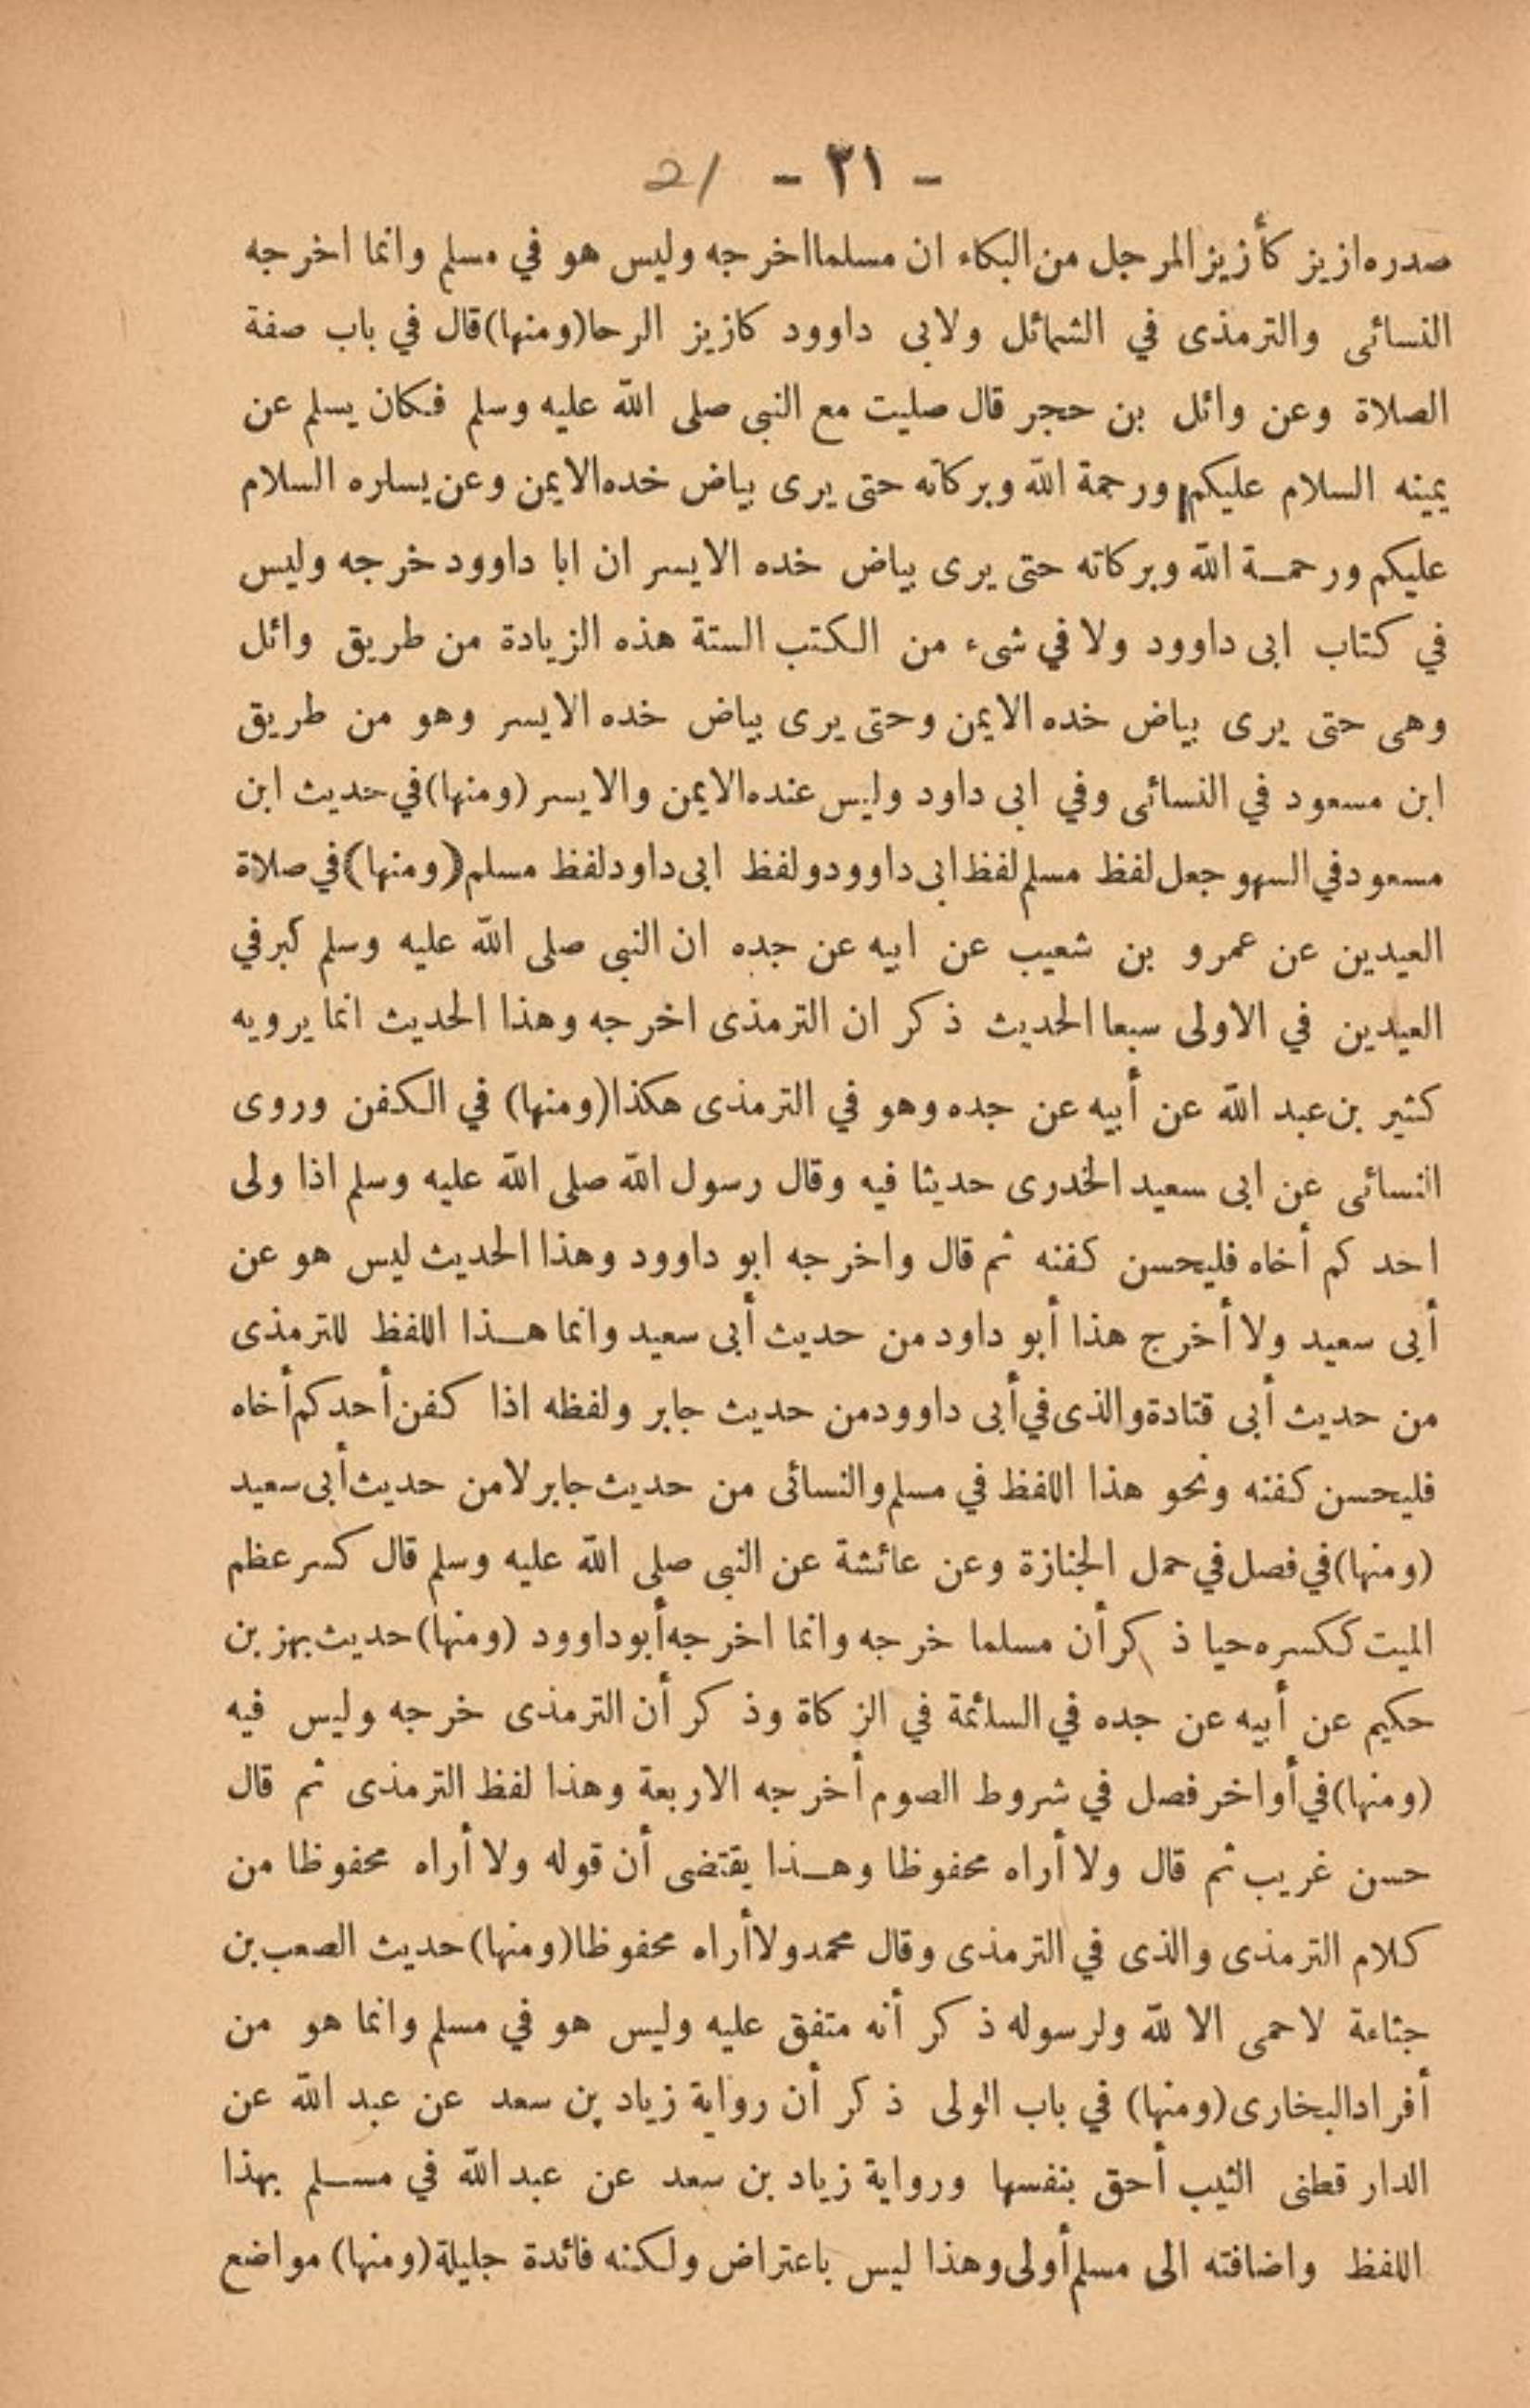 - ٢١ - 21
صدره ازيز كأزيز المرجل من البكاء ان مسلما اخرجه وليس هو في مسلم وانما اخرجه
النسائى والترمذى في الشمائل ولابى داوود كازيز الرحا (ومنها) قال في باب صفة
الصلاة وعن وائل بن حجر قال صليت مع النبى صلى الله عليه وسلم فكان يسلم عن
يمينه السلام عليكم ورحمة الله وبركاته حتى يرى بياض خده الايمن وعن يساره السلام
عليكم ورحمة الله وبركاته حتى يرى بياض خده الايسر ان ابا داوود خرجه وليس
في كتاب ابى داوود ولا في شىء من الكتب الستة هذه الزيادة من طريق وائل
وهى حتى يرى بياض خده الايمن وحتى يرى بياض خده الايسر وهو من طريق
ابن مسعود في النسائى وفي ابى داود وليس عنده الايمن والايسر (ومنها) في حديث ابن
مسعود في السهو جعل لفظ مسلم لفظ ابى داوود ولفظ ابى داود لفظ مسلم (ومنها) في صلاة
العيدين عن عمرو بن شعيب عن ابيه عن جده ان النبى صلى الله عليه وسلم كبر في
العيدين في الاولى سبعا الحديث ذكر ان الترمذى اخرجه وهذا الحديث انما يرويه
كثير بن عبد الله عن أبيه عن جده وهو في الترمذى هكذا (ومنها) في الكفن وروى
النسائى عن ابى سعيد الخدرى حديثا فيه وقال رسول الله صلى الله عليه وسلم اذا ولى
احدكم أخاه فليحسن كفنه ثم قال واخرجه ابو داوود وهذا الحديث ليس هو عن
أبى سعيد ولا أخرج هذا أبو داود من حديث أبى سعيد وانما هذا اللفظ للترمذى
من حديث أبى قتادة والذى في أبى داوود من حديث جابر ولفظه اذا كفن أحدكم أخاه
فليحسن كفنه ونحو هذا اللفظ في مسلم والنسائى من حديث جابر لا من حديث أبى سعيد
(ومنها) في فصل في حمل الجنازة وعن عائشة عن النبى صلى الله عليه وسلم قال كسر عظم
الميت ككسره حيا ذكر أن مسلما خرجه وانما اخرجه أبو داوود (ومنها) حديث بهز بن
حكيم عن أبيه عن جده في السائمة في الزكاة وذكر أن الترمذى خرجه وليس فيه
(ومنها) في أواخر فصل في شروط الصوم أخرجه الاربعة وهذا لفظ الترمذى ثم قال
حسن غريب ثم قال ولا أراه محفوظا وهذا يقتضى أن قوله ولا أراه محفوظا من
كلام الترمذى والذى في الترمذى وقال محمد ولا أراه محفوظا (ومنها) حديث الصعب بن
جثامة لا حمى الا لله ولرسوله ذكر أنه متفق عليه وليس هو في مسلم وانما هو من
أفراد البخارى (ومنها) في باب الولى ذكر أن رواية زياد بن سعد عن عبد الله عن
الدار قطنى الثيب أحق بنفسها ورواية زياد بن سعد عن عبد الله في مسلم بهذا
اللفظ واضافته الى مسلم أولى وهذا ليس باعتراض ولكنه فائدة جليلة (ومنها) مواضع